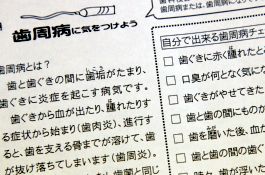 歯周病に気をつけよう
歯周病とは?
歯と歯ぐきの間に歯垢がたまり、
歯ぐきに炎症を起こす病気です。
歯ぐきから血が出たり、腫れたりす
る症状から始まり(歯肉炎)、進行す
ると、歯を支える骨までが溶けて、歯
が抜け落ちてしまいます(歯周炎)。
自分で出来る歯周病チェ
□ 歯ぐきに赤く腫れたと
□ 口臭が何となく気に
□ 歯ぐきがやせてきた
□ 歯と歯の間にものが
□ 歯を磨いた後、
□ 歯と歯の間の歯ぐ
□ 時々、歯が浮いた